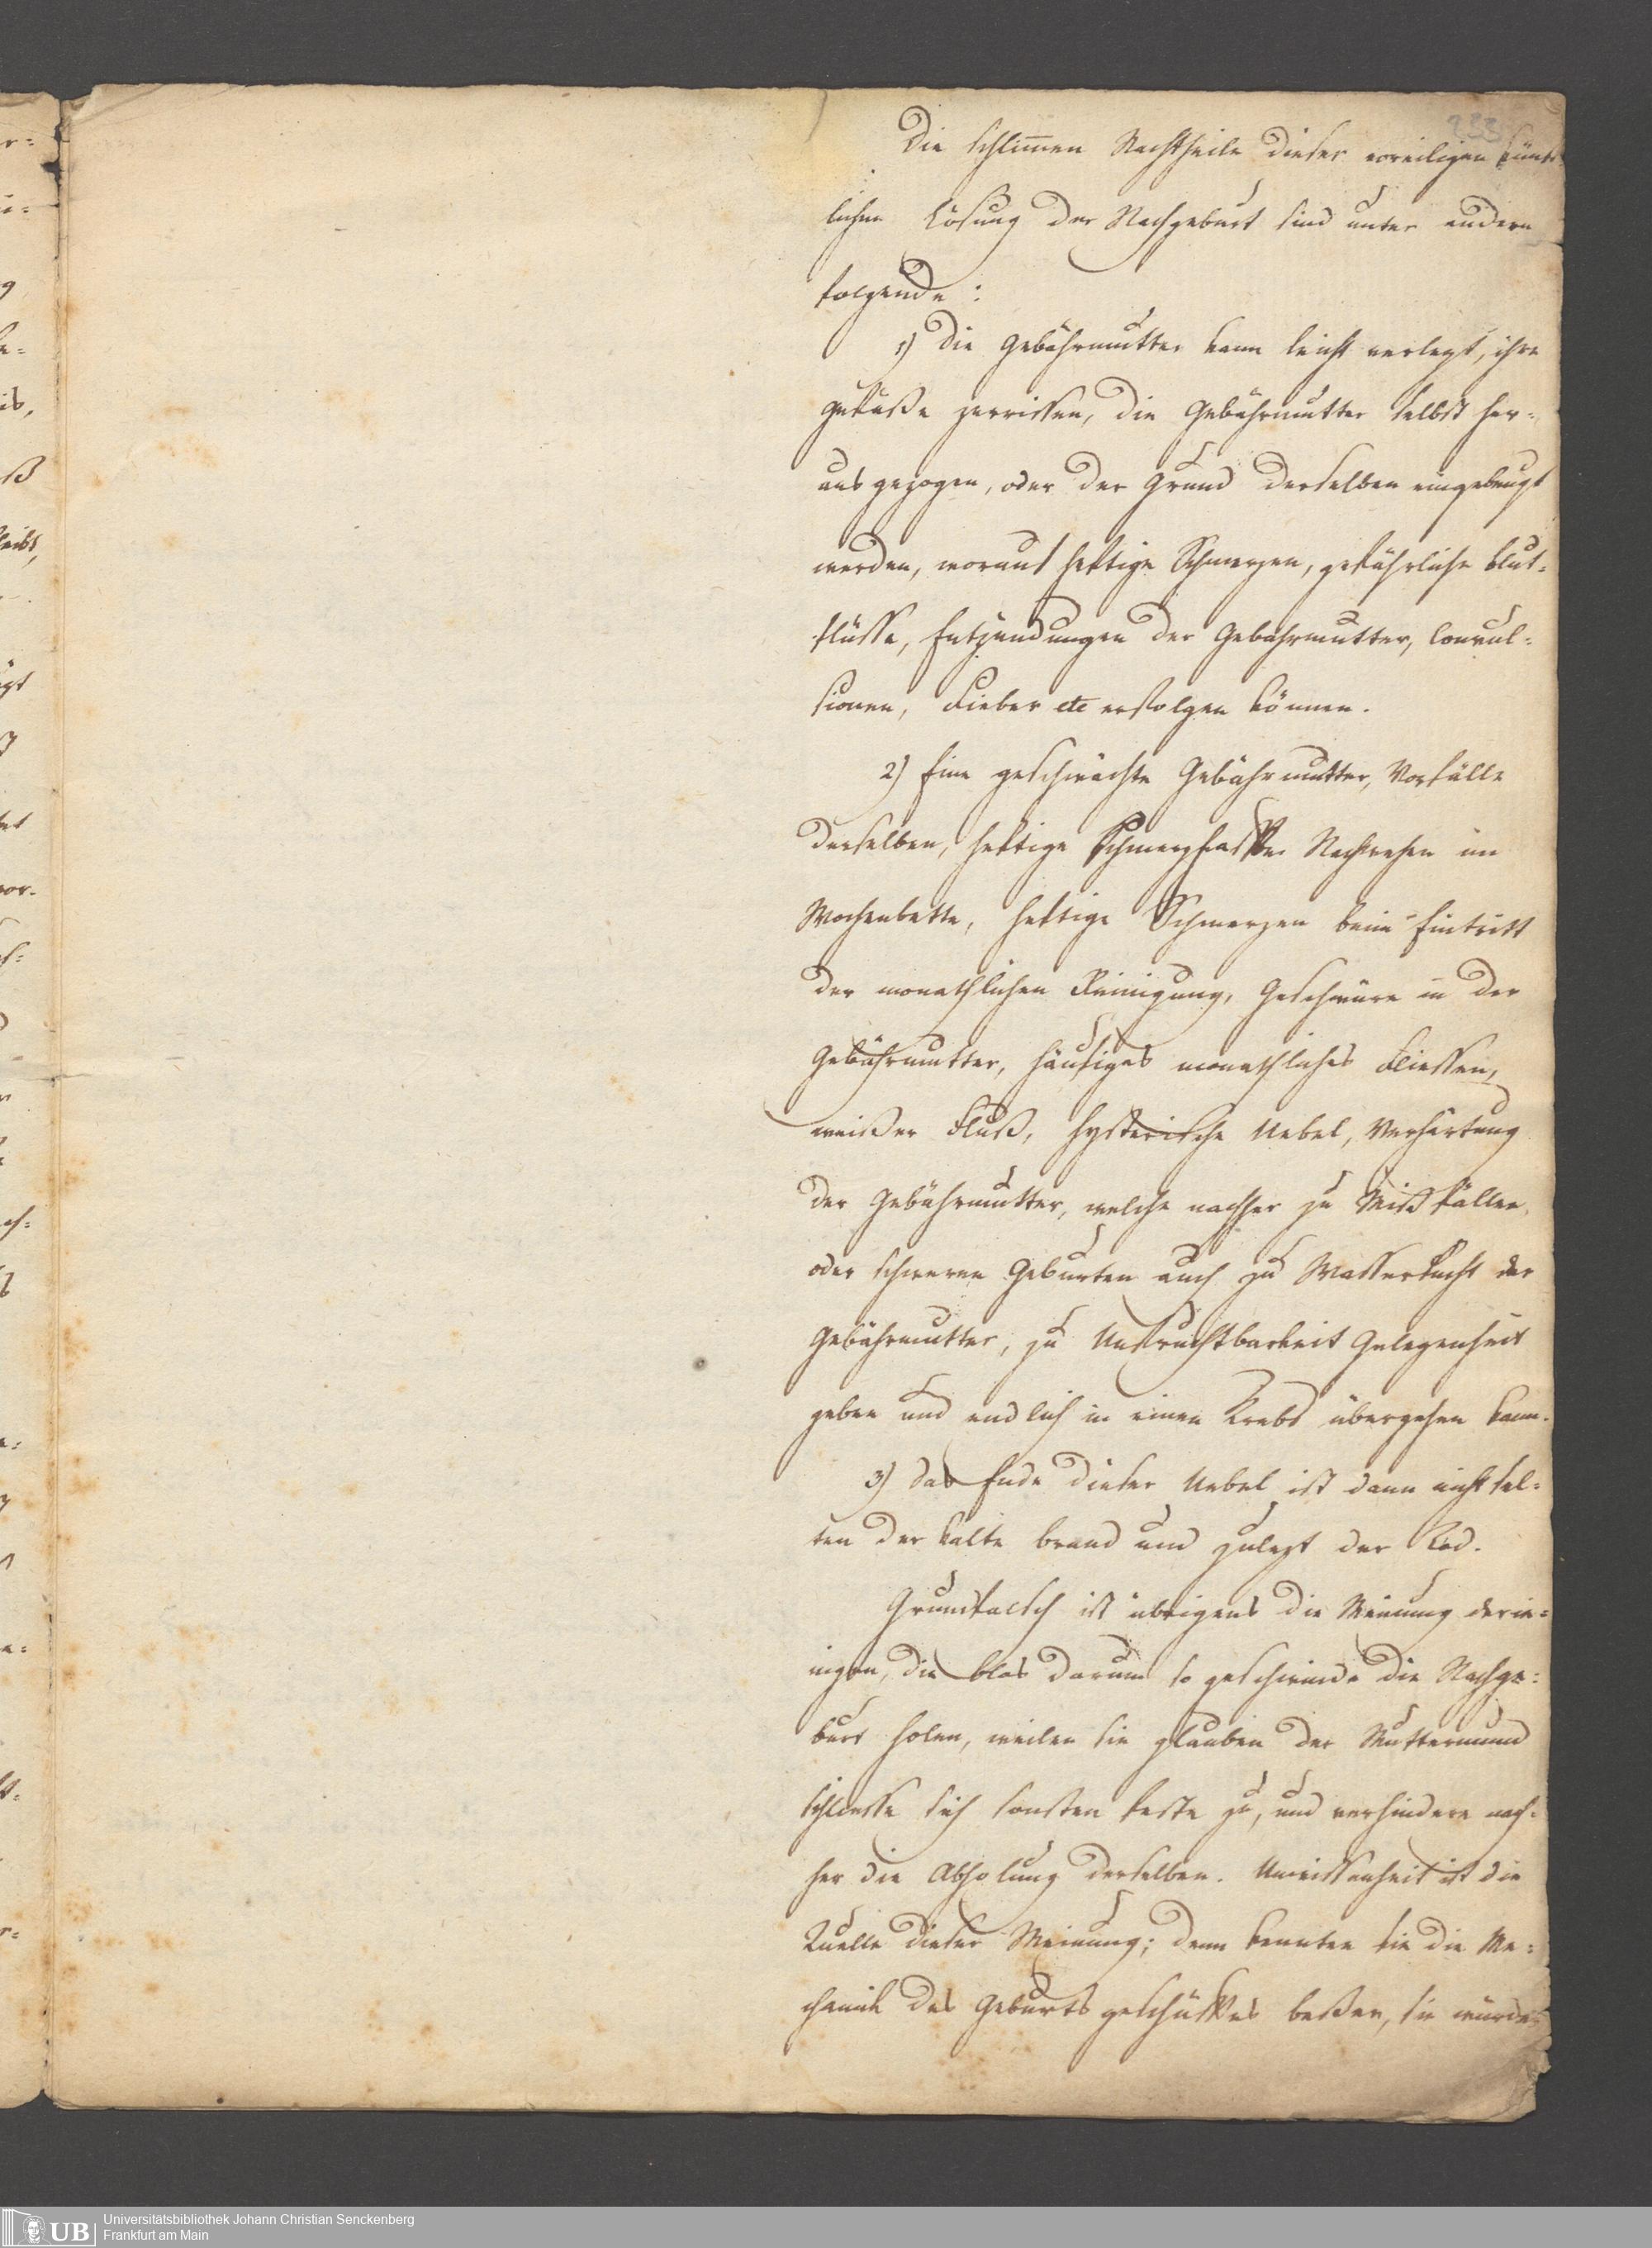 233
Die schlimen Nachtheile dieser voreiligen künst
lichen Lösung der Nachgeburt sind unter andern
folgende:
1) Die Gebährmutter kann leicht verlezt, ihre
Gefäße zerrissen, die Gebährmutter selbst her-
ausgezogen, oder der Grund derselben eingebeugt
werden, worauf heftige Schmerzen, gefährliche Blut-
flüsse, Entzündungen der Gebährmutter, Convul-
sionen, Fieber etc erfolgen können.
2) Eine geschwächte Gebährmutter, Vorfälle
derselben, heftige schmerzhafte Nachwehen im
Wochenbette, heftige Schmerzen beim Eintritt
der monathlichen Reinigung, Geschwüre in der
Gebährmutter, häufiges monathliches Fliessen,
weißer Fluß, hysterische Uebel, Verhärtung
der Gebährmutter, welche nachher zu Mißfällen,
oder schweren Geburten auch zu Wassersucht der
Gebährmutter, zu Unfruchtbarkeit Gelegenheit
geben und endlich in einen Krebs übergehen kann.
3) Das Ende dieser Uebel ist dann nicht sel-
ten der kalte Brand und zulezt der Tod.
Grundfalsch ist übrigens die Meinung derie-
nigen, die blos darum so geschwinde die Nachge-
burt holen, weilen sie glauben der Muttermund
schliesse sich sonsten feste zu, und verhindere nach-
her die Abholung derselben. Unwissenheit ist die
Quelle dieser Meinung; denn kennten sie die Me-
chanik des Geburtsgeschäftes beßer, sie würde
Universitätsbibliothek Johann Christian Senckenberg
Frankfurt am Main
UB